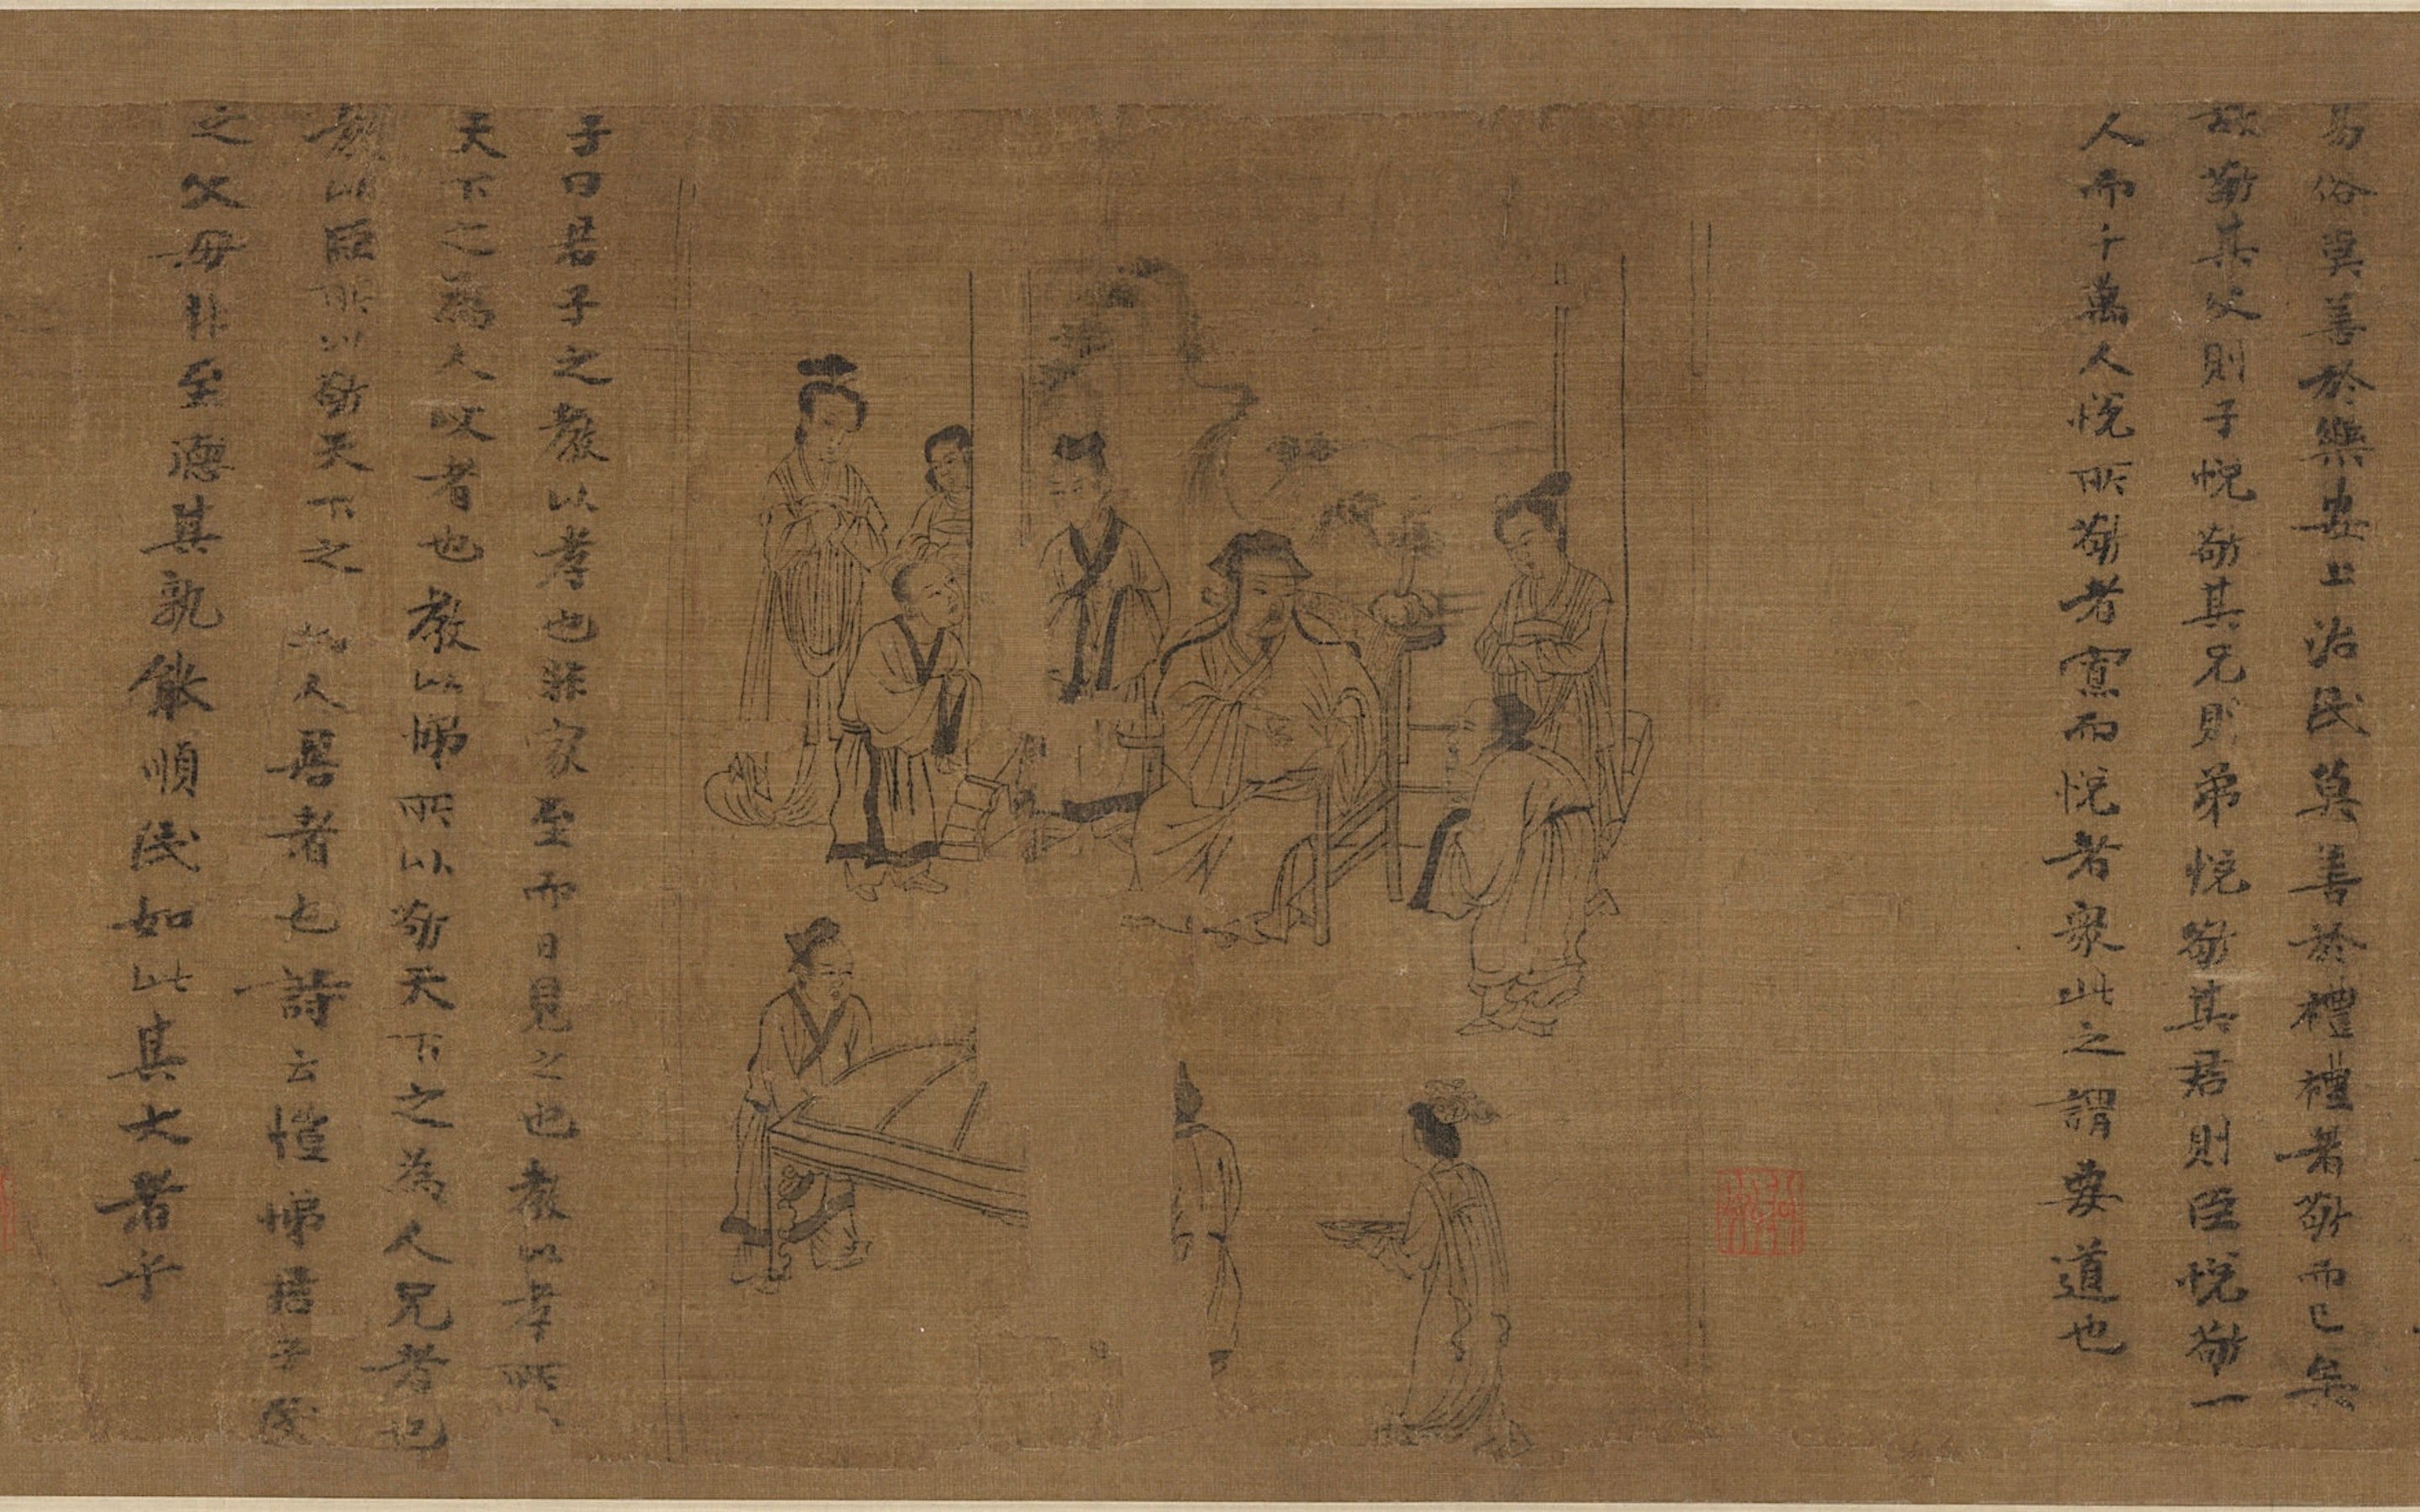 易俗莫善於樂安上治民莫善於禮禮者敬而已矣
故敬其父則子悅敬其兄則弟悅敬其君則臣悅敬一
人而千萬人悅所敬者寡而悅者衆此之謂要道也
子曰君子之教以孝也非家至而日見之也教以孝所以
天下之為人父者也教以悌所以敬天下之為人兄者也
教以臣所以敬天下之為人君者也詩云愷悌君子民
之父母非至德其孰能順民如此其大者乎